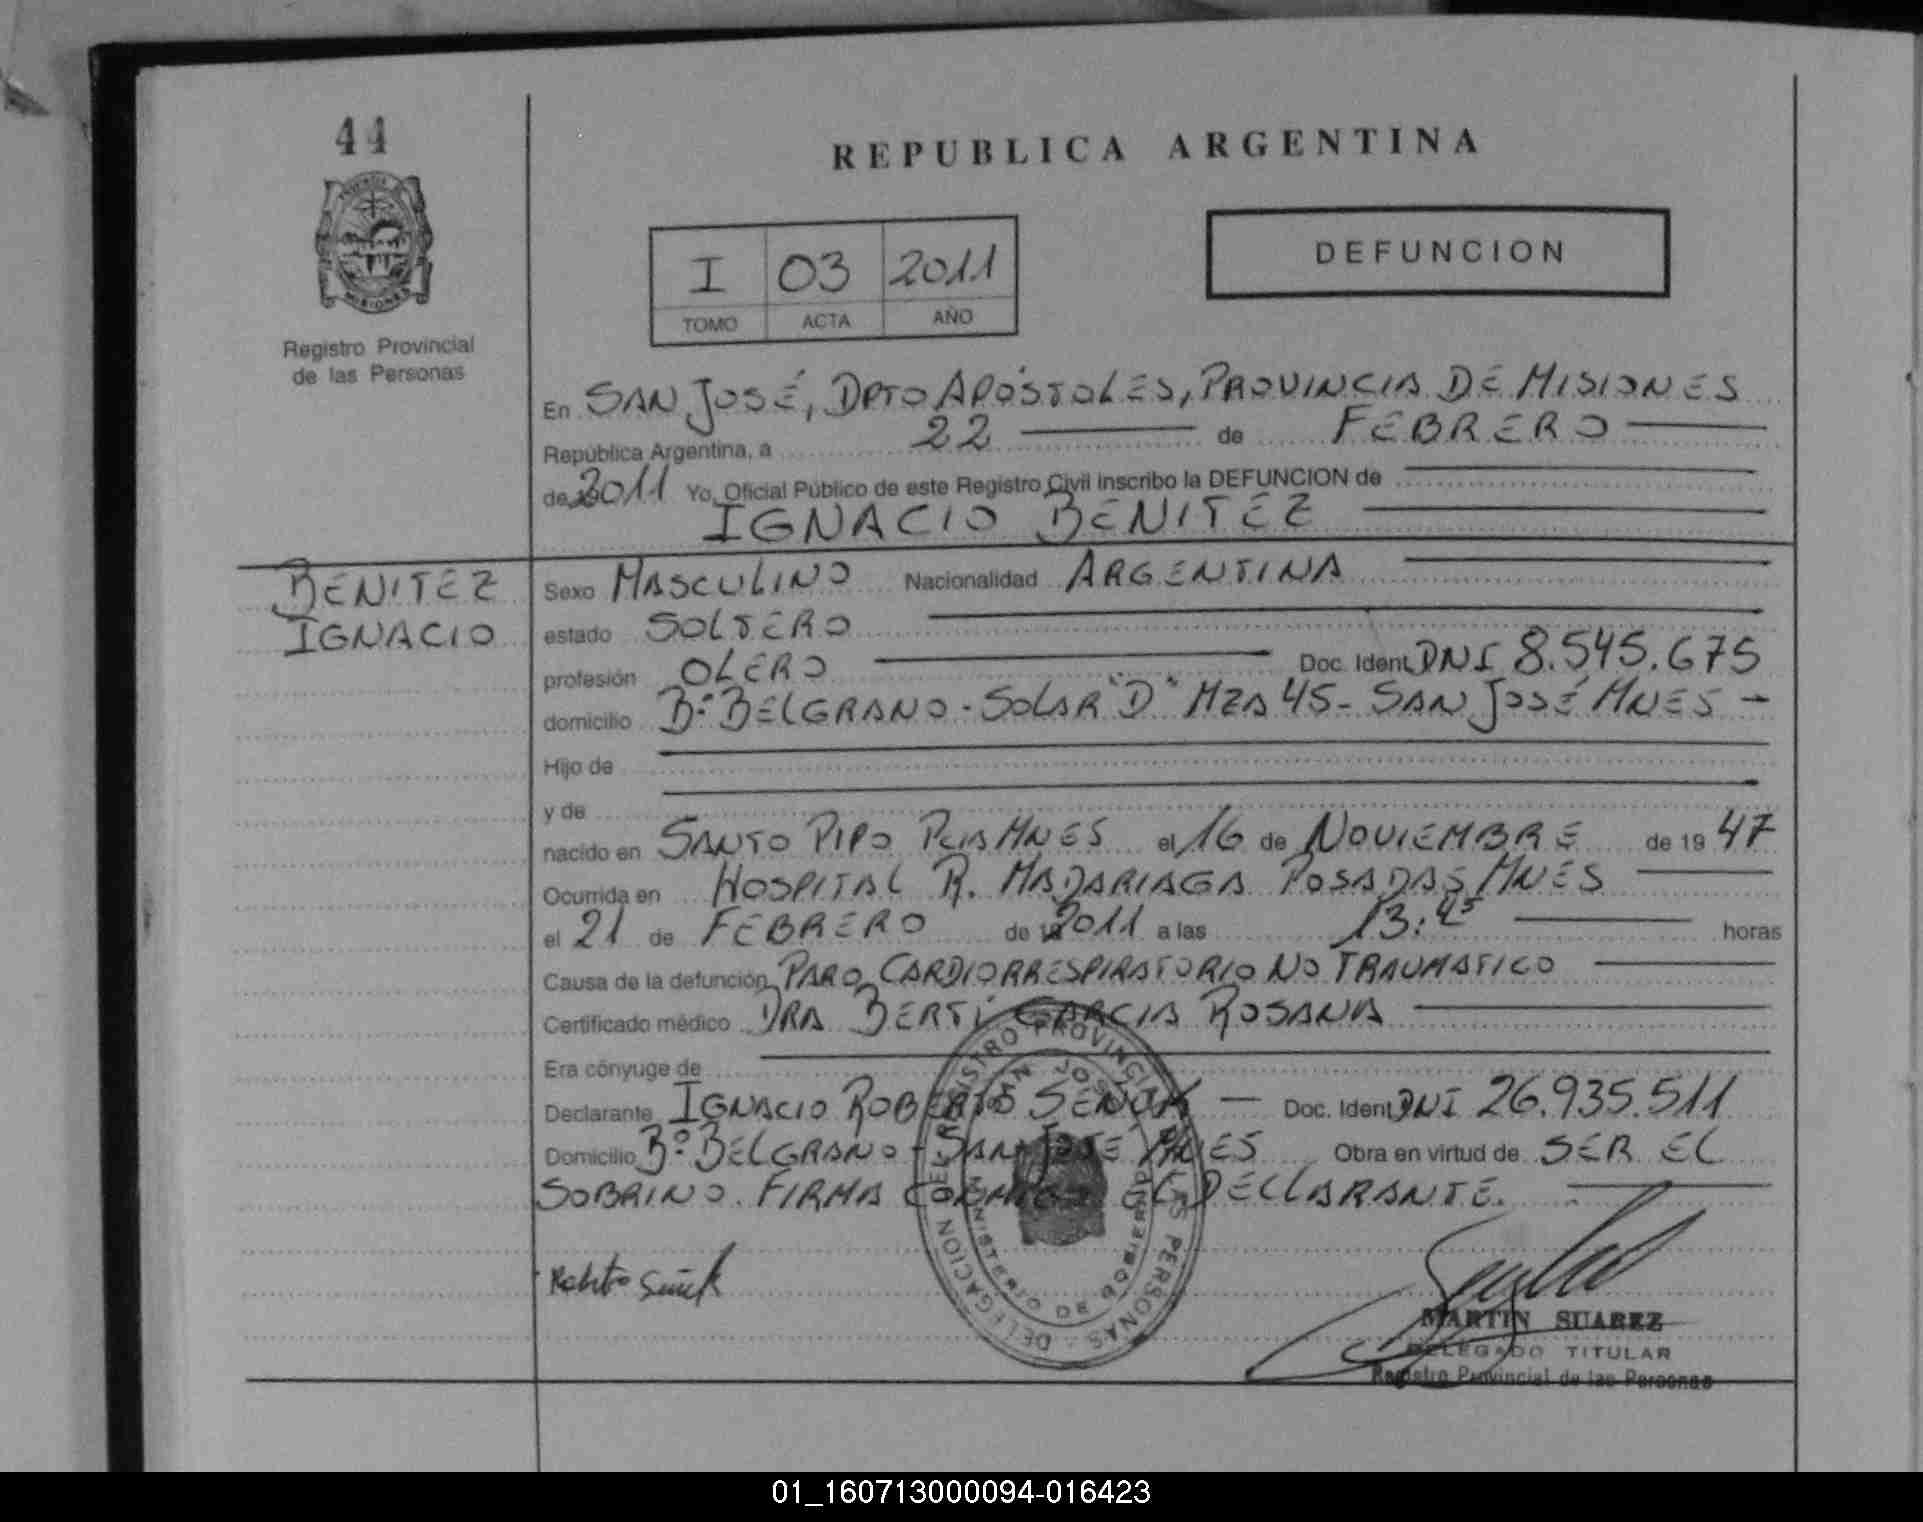 44
REPUBLICA ARGENTINA
MISIONES
Registro Provincial
de las Personas
I 03 2011
TOMO ACTA AÑO
DEFUNCION
En SAN JOSÉ, DPTO APÓSTOLES, PROVINCIA DE MISIONES
República Argentina, a 22 de FEBRERO
de 2011 Yo, Oficial Público de este Registro Civil inscribo la DEFUNCION de
IGNACIO BENITEZ
BENITEZ
IGNACIO
Sexo MASCULINO Nacionalidad ARGENTINA
estado SOLTERO
profesión OLERO Doc. Ident DNI 8.545.675
domicilio Bº BELGRANO - SOLAR "D" MZA 45 - SAN JOSÉ MNES -
Hijo de
y de
nacido en SANTO PIPO PCIA MNES el 16 de NOVIEMBRE de 19 47
Ocurrida en HOSPITAL R. MADARIAGA POSADAS MNES
el 21 de FEBRERO de 2011 a las 13:45 horas
Causa de la defunción PARO CARDIORRESPIRATORIO NO TRAUMATICO
Certificado médico DRA BERTI GARCIA ROSANA
Era cónyuge de
Declarante IGNACIO ROBERTO Doc. Ident DNI 26.935.511
Domicilio Bº BELGRANO - SAN JOSÉ MNES Obra en virtud de SER EL
SOBRINO. FIRMA CONMIGO EL DECLARANTE.
REGISTRO PROVINCIAL DE LAS PERSONAS - DELEGACION DEL
SAN JOSE
MINISTERIO DE GOBIERNO
MARTIN SUAREZ
DELEGADO TITULAR
Registro Provincial de las Personas
01_160713000094-016423